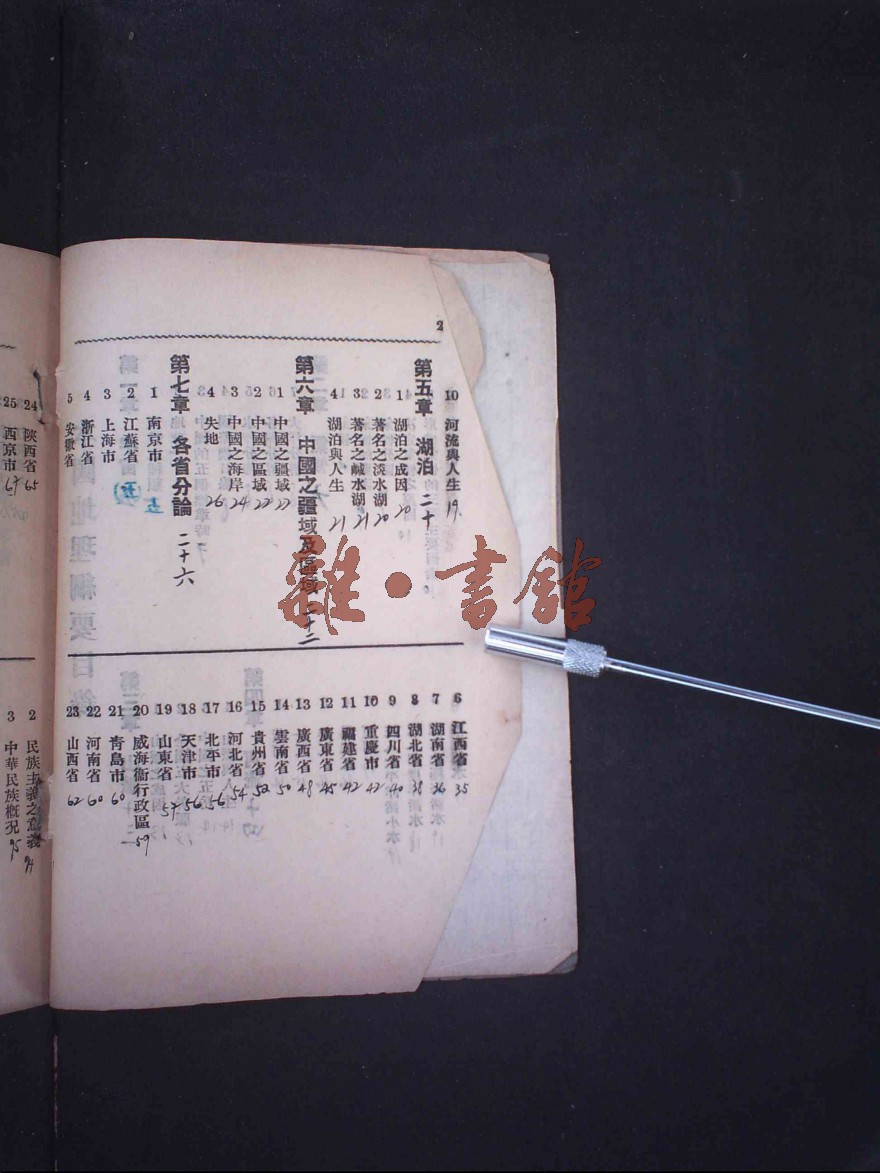 2
10 河流與人生 19
第五章 湖泊 二十
1 湖泊之成因 20
2 著名之淡水湖 20
3 著名之鹹水湖 21
4 湖泊與人生 21
第六章 中國之疆域及區域 二十二
1 中國之疆域 22
2 中國之區域 22
3 中國之海岸 24
4 失地 26
第七章 各省分論 二十六
1 南京市
2 江蘇省
3 上海市
4 浙江省
5 安徽省
6 江西省 35
7 湖南省 36
8 湖北省 38
9 四川省 40
10 重慶市 42
11 福建省 42
12 廣東省 45
13 廣西省 48
14 雲南省 50
15 貴州省 52
16 河北省 54
17 北平市 56
18 天津市 56
19 山東省 57
20 威海衞行政區 59
21 青島市 60
22 河南省 60
23 山西省 62
24 陝西省 65
25 西京市 67
2 民族主義之意義 94
3 中華民族概況 95
雜·書館